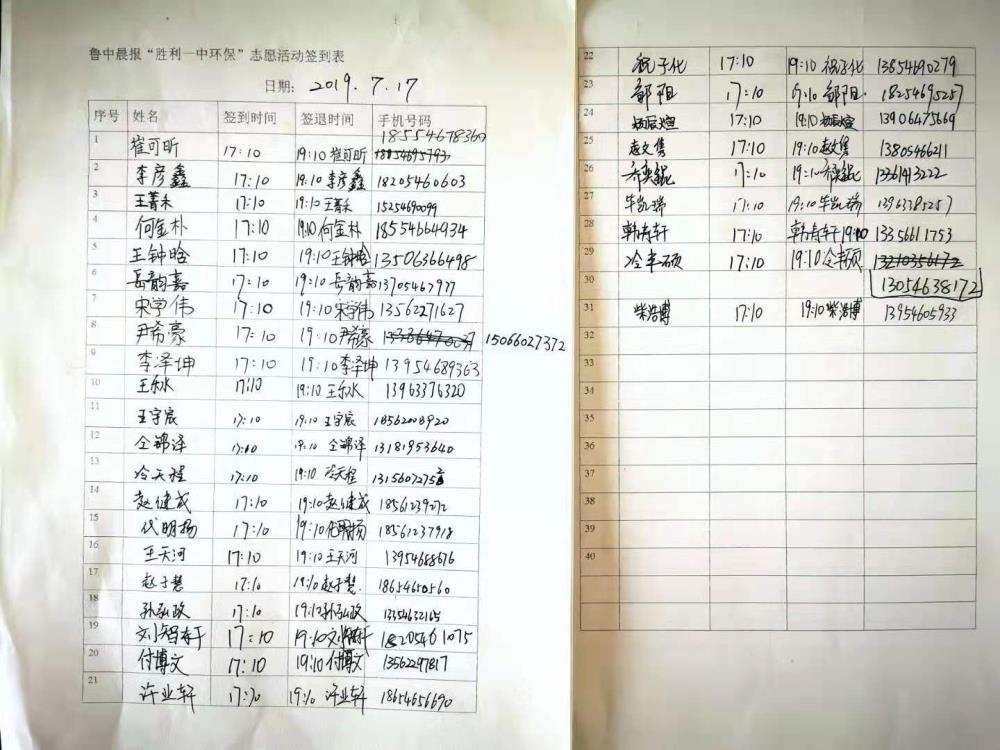 鲁中晨报“胜利一中环保”志愿活动签到表
日期: 2019.7.17
序号 姓名 签到时间 签退时间 手机号码
18554678360
1 崔可昕 17:10 19:10 崔可昕
2 李彦鑫 17:10 19:10 李彦鑫 18205460603
3 王菁禾 17:10 19:10 王菁禾 15254690099
4 何金朴 17:10 19:10 何金朴 18554664934
5 王钟晗 17:10 19:10 王钟晗 13506366498
6 岳韵嘉 17:10 19:10 岳韵嘉 13705467977
7 宋学伟 17:10 19:10 宋学伟 13562271627
8 尹希豪 17:10 19:10 尹希豪 15066027372
9 李泽坤 17:10 19:10 李泽坤 13954689363
10 王乐水 17:10 19:10 王乐水 13963376320
11 王宇宸 17:10 19:10 王宇宸 18562008920
12 仝锦泽 17:10 19:10 仝锦泽 13181953640
13 冷天程 17:10 19:10 冷天程
14 赵健成 17:10 19:10 赵健成 1856129272
15 代明扬 17:10 19:10 代明扬 18561237918
16 王天河 17:10 19:10 王天河 13954668676
17 赵子慧 17:10 19:10 赵子慧 18654610560
18 孙弘政 17:10 19:10 孙弘政 13354632165
19 刘智轩 17:10 19:10 刘智轩 18205461075
20 付博文 17:10 19:10 付博文 13562297817
21 许业轩 17:10 19:10 许业轩 18654656690
22 祝子化 17:10 19:10 祝子化 13854690279
23 郜阳 17:10 19:10 郜阳 18254695257
24 17:10 19:10 13906475669
25 赵文隽 17:10 19:10 赵文隽 13805466211
26 17:10 19:10 13361413222
27 牟凯瑞 17:10 19:10 牟凯瑞 13963785257
28 韩涛轩 17:10 韩涛轩 19:10 13356611753
29 冷丰硕 17:10 19:10 冷丰硕 13210356172
30 13054638172
31 柴浩博 17:10 19:10 柴浩博 13954605933
32
33
34
35
36
37
38
39
40